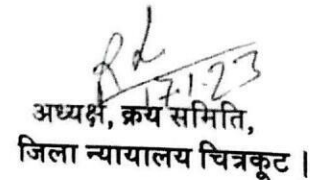 17.1.23
अध्यक्ष, क्रय समिति,
जिला न्यायालय चित्रकूट ।